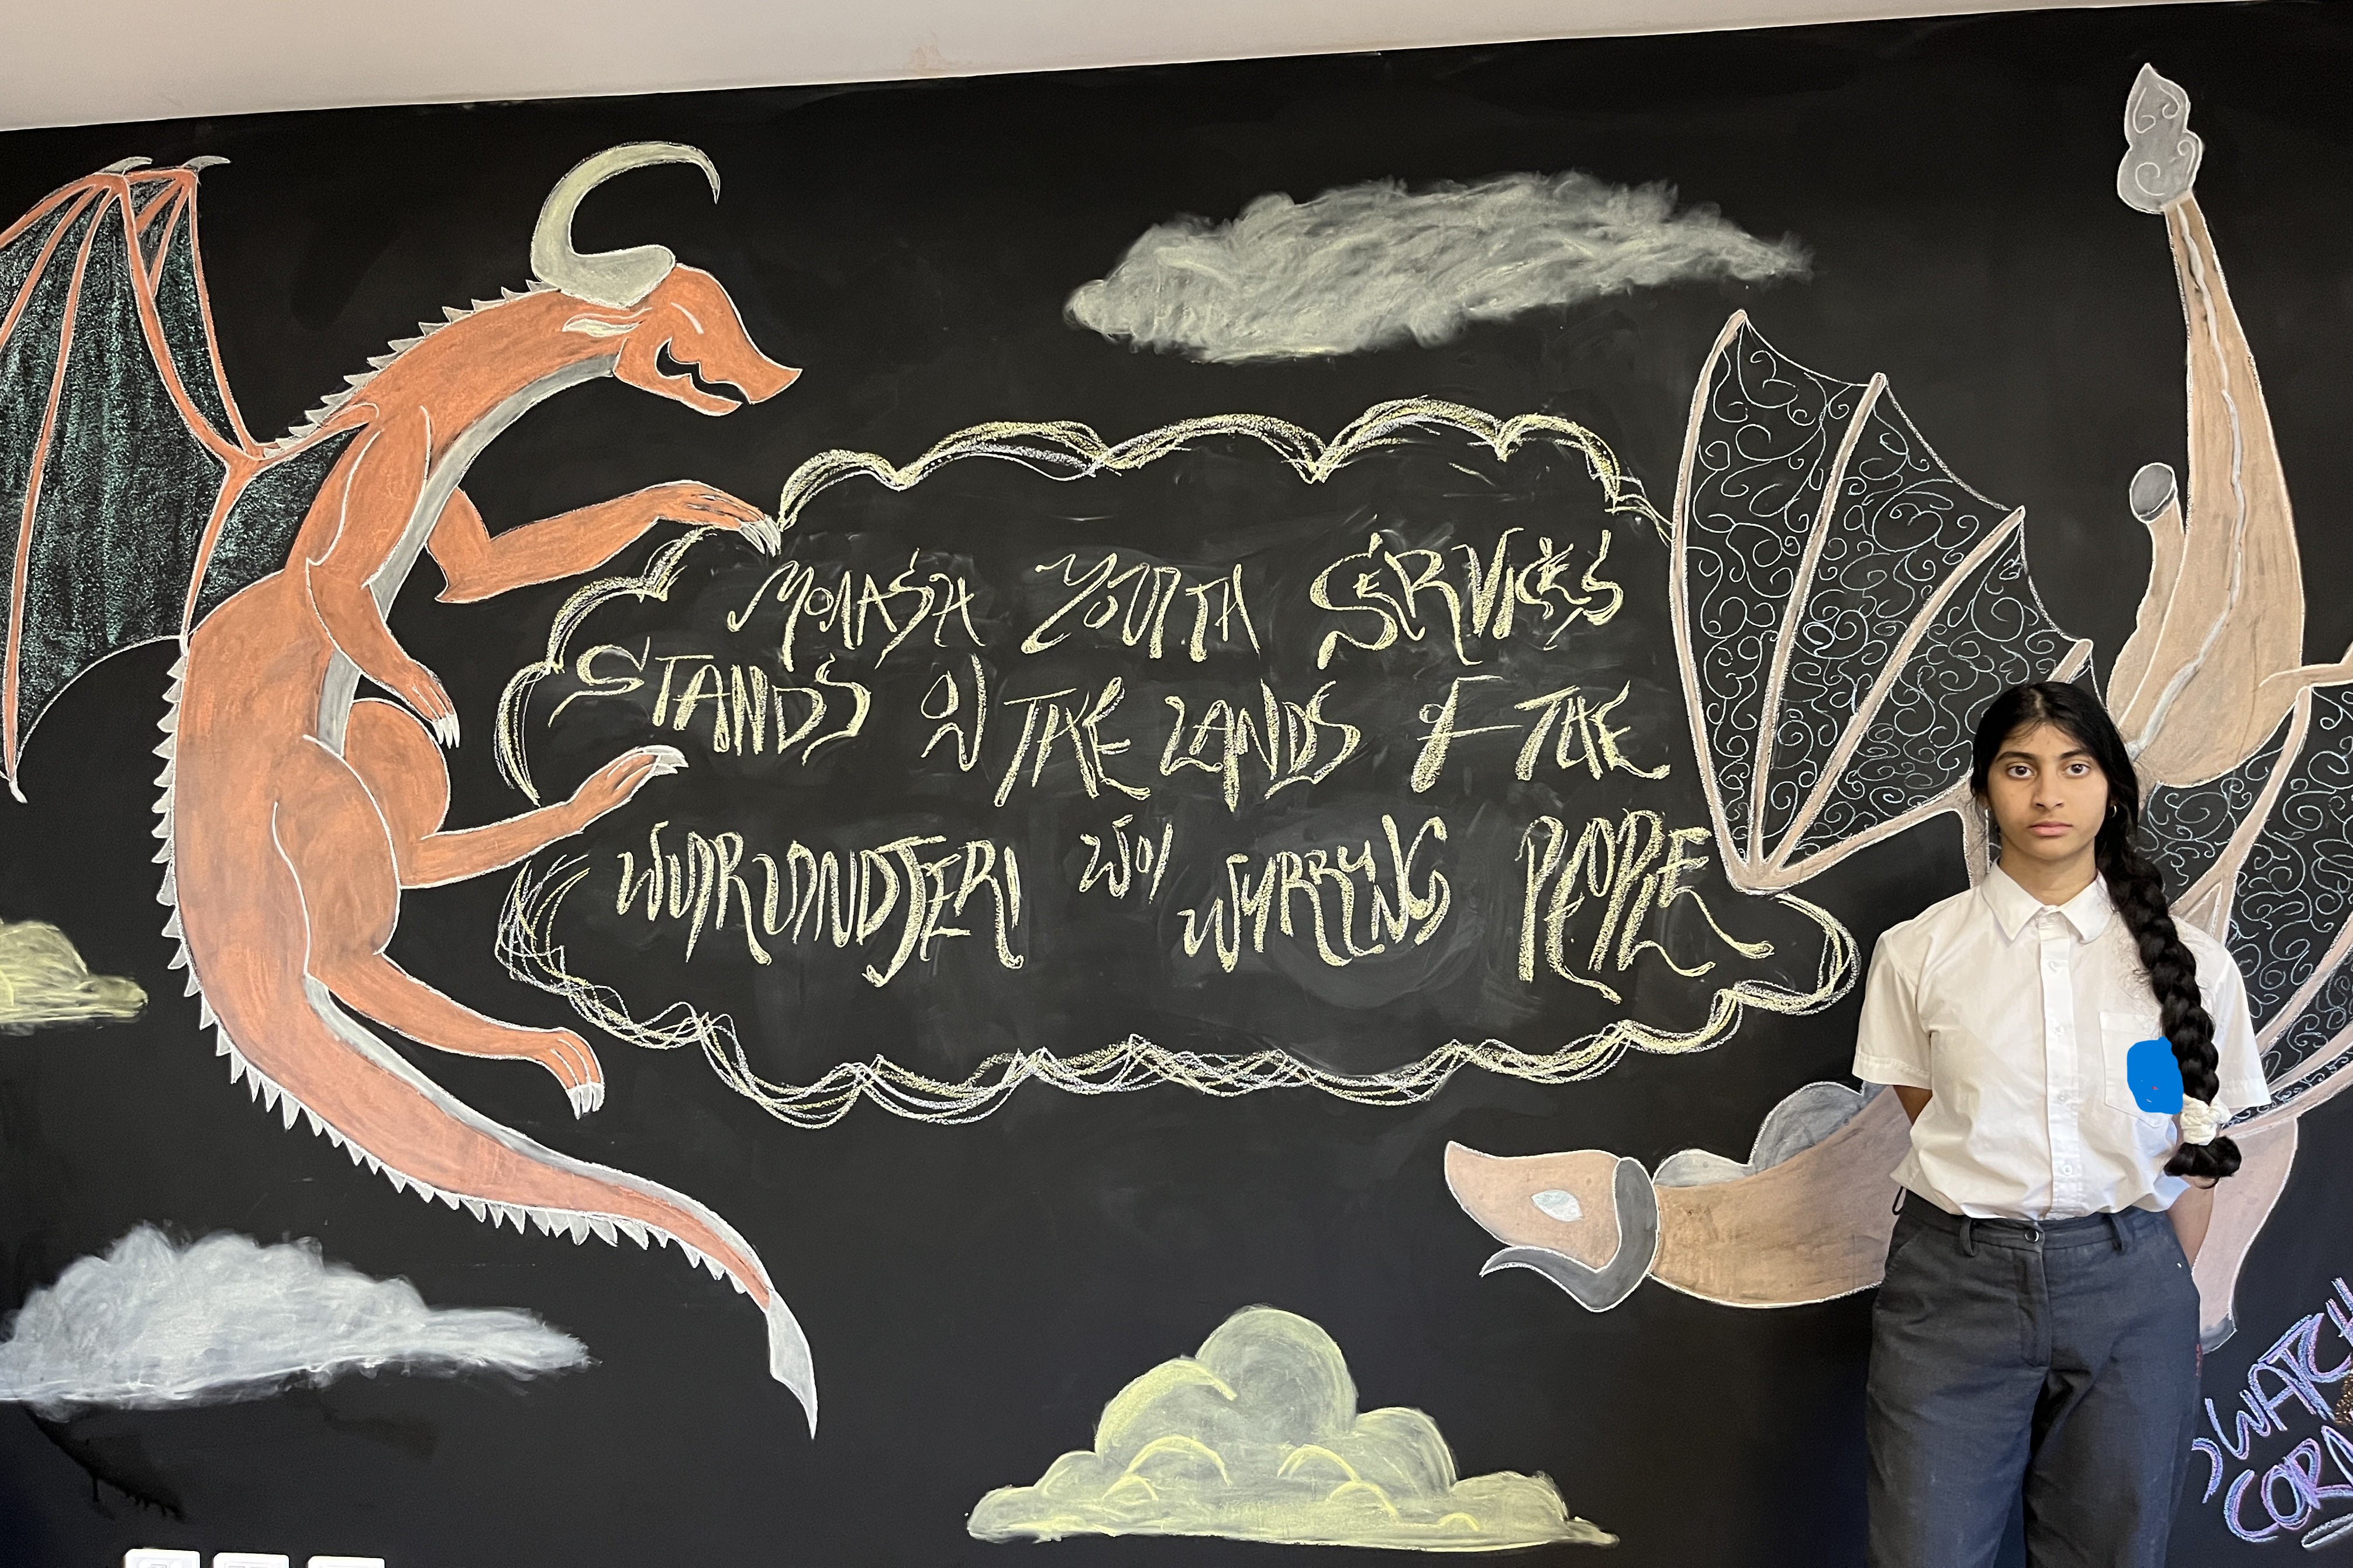 MONASH YOUTH SERVICES
STANDS ON THE LANDS OF THE
WURUNDJERI WOI WURRUNG PEOPLE
WATCH